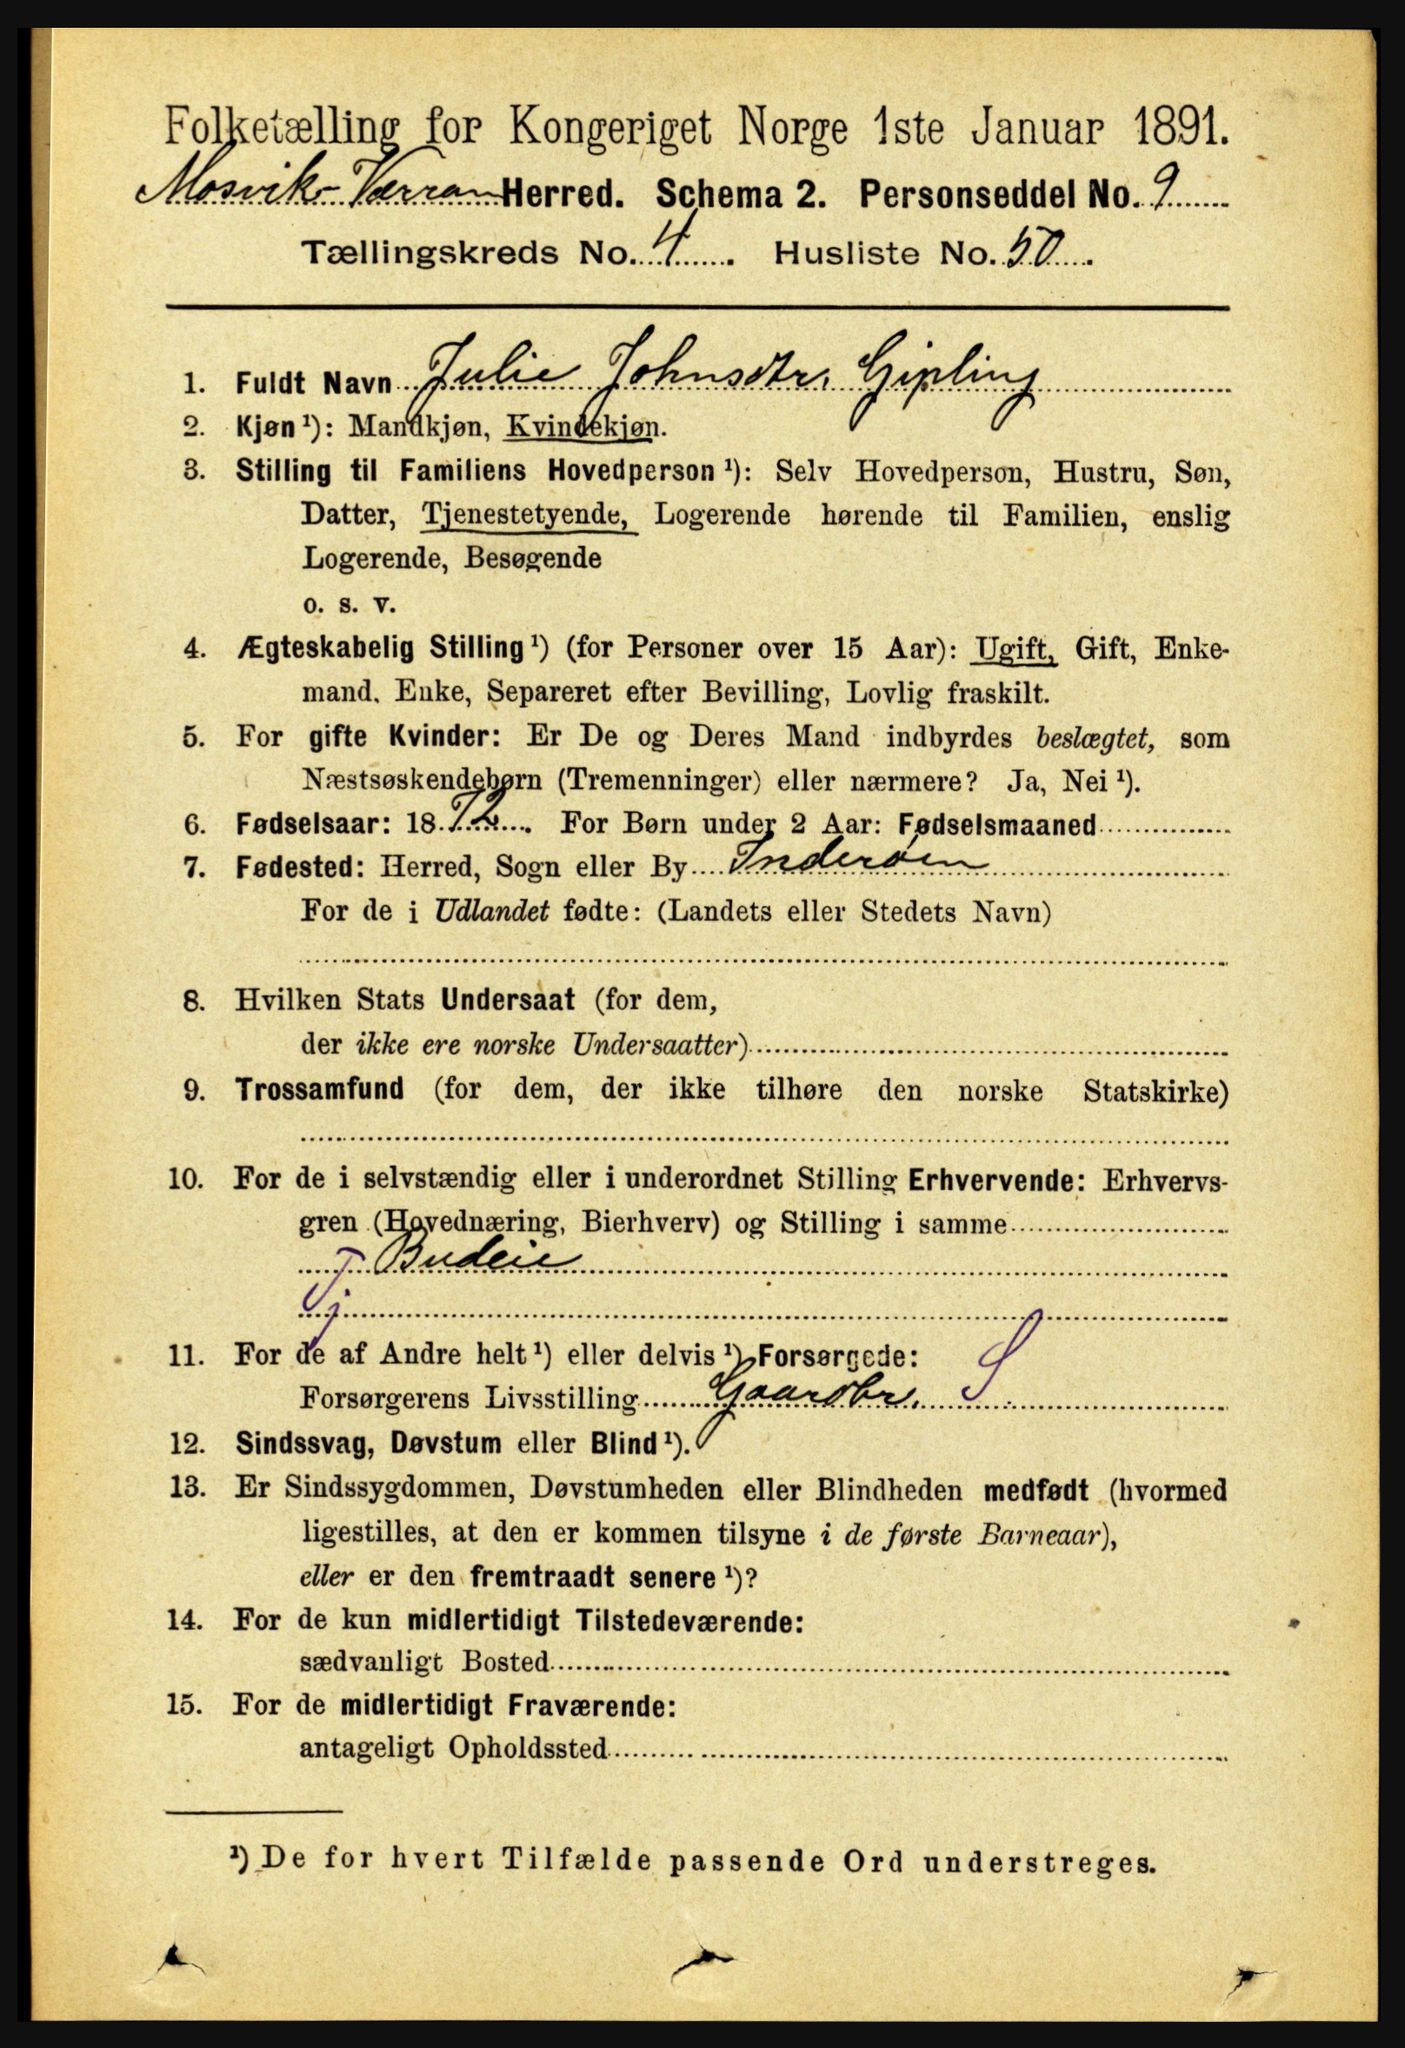 Folketælling for Kongeriget Norge 1ste Januar 1891.
Mosvik-Værran Herred. Schema 2. Personseddel No. 9
Tællingskreds No. 4. Husliste No. 50.
1. Fuldt Navn Julie Johnsdtr. Gipling
2. Kjøn ¹): Mandkjøn, Kvindekjøn.
3. Stilling til Familiens Hovedperson ¹): Selv Hovedperson, Hustru, Søn,
Datter, Tjenestetyende, Logerende hørende til Familien, enslig
Logerende, Besøgende
o. s. v.
4. Ægteskabelig Stilling ¹) (for Personer over 15 Aar): Ugift, Gift, Enke-
mand, Enke, Separeret efter Bevilling, Lovlig fraskilt.
5. For gifte Kvinder: Er De og Deres Mand indbyrdes beslægtet, som
Næstsøskendebørn (Tremenninger) eller nærmere? Ja, Nei ¹).
6. Fødselsaar: 1872. For Børn under 2 Aar: Fødselsmaaned
7. Fødested: Herred, Sogn eller By Inderøen
For de i Udlandet fødte: (Landets eller Stedets Navn)
8. Hvilken Stats Undersaat (for dem,
der ikke ere norske Undersaatter)
9. Trossamfund (for dem, der ikke tilhøre den norske Statskirke)
10. For de i selvstændig eller i underordnet Stilling Erhvervende: Erhvervs-
gren (Hovednæring, Bierhverv) og Stilling i samme
Tj Budeie
11. For de af Andre helt ¹) eller delvis ¹) Forsørgede:
Forsørgerens Livsstilling Gaardbr. S
12. Sindssvag, Døvstum eller Blind ¹).
13. Er Sindssygdommen, Døvstumheden eller Blindheden medfødt (hvormed
ligestilles, at den er kommen tilsyne i de første Barneaar),
eller er den fremtraadt senere ¹)?
14. For de kun midlertidigt Tilstedeværende:
sædvanligt Bosted
15. For de midlertidigt Fraværende:
antageligt Opholdssted
¹) De for hvert Tilfælde passende Ord understreges.